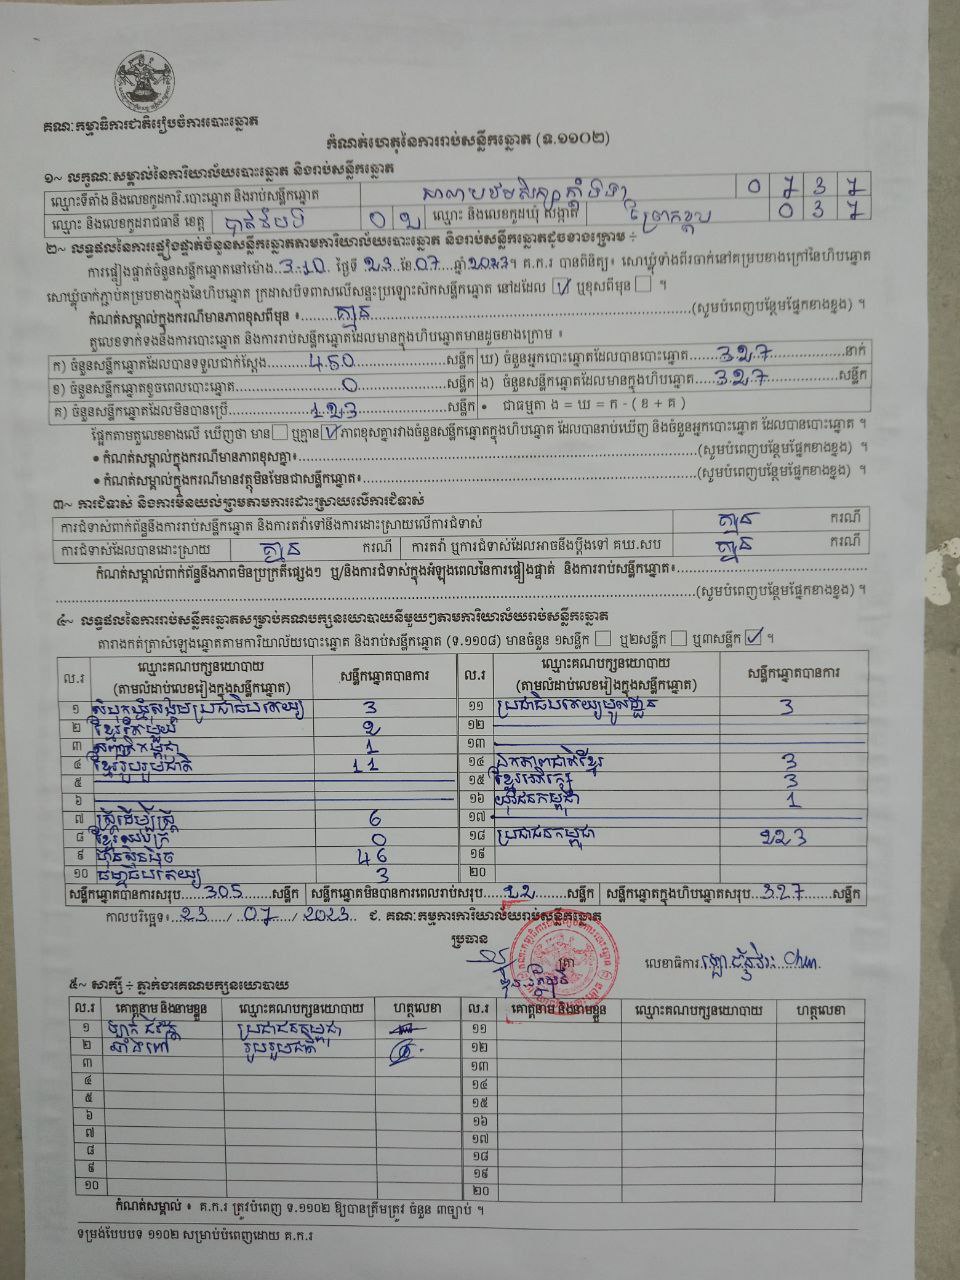 គណៈកម្មាធិការជាតិរៀបចំការបោះឆ្នោត
កំណត់ហេតុនៃការរាប់សន្លឹកឆ្នោត (ទ.១១០២)
១~ លក្ខណៈសម្គាល់នៃការិយាល័យបោះឆ្នោត និងរាប់សន្លឹកឆ្នោត
ឈ្មោះទីតាំង និងលេខកូដការិ.បោះឆ្នោត និងរាប់សន្លឹកឆ្នោត 0 7 3 7
ឈ្មោះ និងលេខកូដរាជធានី ខេត្ត បាត់ដំបង 0 2 ឈ្មោះ និងលេខកូដឃុំ សង្កាត់ ព្រែកខ្ពប 0 3 7
២~ លទ្ធផលនៃការផ្ទៀងផ្ទាត់ចំនួនសន្លឹកឆ្នោតតាមការិយាល័យបោះឆ្នោត និងរាប់សន្លឹកឆ្នោតដូចខាងក្រោម ÷
ការផ្ទៀងផ្ទាត់ចំនួនសន្លឹកឆ្នោតនៅម៉ោង 3:10 ថ្ងៃទី 23 ខែ 07 ឆ្នាំ 2023។ គ.ក.រ បានពិនិត្យ៖ សោឃ្លុំទាំងពីរចាក់នៅគម្របខាងក្រៅនៃហិបឆ្នោត
សោឃ្លុំចាក់ភ្ជាប់គម្របខាងក្នុងនៃហិបឆ្នោត ក្រដាសបិទពាសលើសន្ទះប្រឡោះស៊កសន្លឹកឆ្នោត នៅដដែល ☑ ឬខុសពីមុន ☐ ។
កំណត់សម្គាល់ក្នុងករណីមានភាពខុសពីមុន ៖ គ្មាន (សូមបំពេញបន្ថែមផ្នែកខាងខ្នង) ។
តួលេខទាក់ទងនឹងការបោះឆ្នោត និងការរាប់សន្លឹកឆ្នោតដែលមានក្នុងហិបឆ្នោតមានដូចខាងក្រោម ៖
ក) ចំនួនសន្លឹកឆ្នោតដែលបានទទួលជាក់ស្ដែង 450 សន្លឹក ឃ) ចំនួនអ្នកបោះឆ្នោតដែលបានបោះឆ្នោត 327 នាក់
ខ) ចំនួនសន្លឹកឆ្នោតខូចពេលបោះឆ្នោត 0 សន្លឹក ង) ចំនួនសន្លឹកឆ្នោតដែលមានក្នុងហិបឆ្នោត 327 សន្លឹក
គ) ចំនួនសន្លឹកឆ្នោតដែលមិនបានប្រើ 123 សន្លឹក • ជាធម្មតា ង = ឃ = ក - ( ខ + គ )
ផ្អែកតាមតួលេខខាងលើ ឃើញថា មាន ☐ ឬគ្មាន ☑ ភាពខុសគ្នារវាងចំនួនសន្លឹកឆ្នោតក្នុងហិបឆ្នោត ដែលបានរាប់ឃើញ និងចំនួនអ្នកបោះឆ្នោត ដែលបានបោះឆ្នោត ។
• កំណត់សម្គាល់ក្នុងករណីមានភាពខុសគ្នា៖ (សូមបំពេញបន្ថែមផ្នែកខាងខ្នង) ។
• កំណត់សម្គាល់ក្នុងករណីមានវត្ថុមិនមែនជាសន្លឹកឆ្នោត៖ (សូមបំពេញបន្ថែមផ្នែកខាងខ្នង) ។
៣~ ការជំទាស់ និងការមិនយល់ព្រមតាមការដោះស្រាយលើការជំទាស់
ការជំទាស់ពាក់ព័ន្ធនឹងការរាប់សន្លឹកឆ្នោត និងការតវ៉ាទៅនឹងការដោះស្រាយលើការជំទាស់ គ្មាន ករណី
ការជំទាស់ដែលបានដោះស្រាយ គ្មាន ករណី ការតវ៉ា ឬការជំទាស់ដែលអាចនឹងប្ដឹងទៅ គឃ.សប គ្មាន ករណី
កំណត់សម្គាល់ពាក់ព័ន្ធនឹងភាពមិនប្រក្រតីផ្សេងៗ ឬ/និងការជំទាស់ក្នុងអំឡុងពេលនៃការផ្ទៀងផ្ទាត់ និងការរាប់សន្លឹកឆ្នោត៖
(សូមបំពេញបន្ថែមផ្នែកខាងខ្នង) ។
៤~ លទ្ធផលនៃការរាប់សន្លឹកឆ្នោតសម្រាប់គណបក្សនយោបាយនីមួយៗតាមការិយាល័យរាប់សន្លឹកឆ្នោត
តារាងកត់ត្រាសំឡេងឆ្នោតតាមការិយាល័យបោះឆ្នោត និងរាប់សន្លឹកឆ្នោត (ទ.១១០៨) មានចំនួន ១សន្លឹក ☐ ឬ២សន្លឹក ☐ ឬ៣សន្លឹក ☑ ។
ល.រ ឈ្មោះគណបក្សនយោបាយ (តាមលំដាប់លេខរៀងក្នុងសន្លឹកឆ្នោត) សន្លឹកឆ្នោតបានការ ល.រ ឈ្មោះគណបក្សនយោបាយ (តាមលំដាប់លេខរៀងក្នុងសន្លឹកឆ្នោត) សន្លឹកឆ្នោតបានការ
១ សំបុកឃ្មុំសង្គមប្រជាធិបតេយ្យ 3 ១១ ប្រជាធិបតេយ្យមូលដ្ឋាន 3
២ ខ្មែរតែមួយ 2 ១២
៣ កម្ពុជា 1 ១៣
៤ ខ្មែររួបរួមជាតិ 11 ១៤ ឯកភាពជាតិខ្មែរ 3
៥ ១៥ ខ្មែរអភិរក្ស 3
៦ ១៦ យុវជនកម្ពុជា 1
៧ ស្ត្រីដើម្បីស្ត្រី 6 ១៧
៨ ខ្មែរឈប់ក្រ 0 ១៨ ប្រជាជនកម្ពុជា 223
៩ ហ៊្វុនស៊ិនប៉ិច 46 ១៩
១០ ធម្មាធិបតេយ្យ 3 ២០
សន្លឹកឆ្នោតបានការសរុប 305 សន្លឹក សន្លឹកឆ្នោតមិនបានការពេលរាប់សរុប 22 សន្លឹក សន្លឹកឆ្នោតក្នុងហិបឆ្នោតសរុប 327 សន្លឹក
កាលបរិច្ឆេទ៖ 23 / 07 / 2023 ជ. គណៈកម្មការការិយាល័យរាប់សន្លឹកឆ្នោត
ប្រធាន
ត្រា លេខាធិការ
៥~ សាក្សី ÷ ភ្នាក់ងារគណបក្សនយោបាយ
ល.រ គោត្តនាម និងនាមខ្លួន ឈ្មោះគណបក្សនយោបាយ ហត្ថលេខា ល.រ គោត្តនាម និងនាមខ្លួន ឈ្មោះគណបក្សនយោបាយ ហត្ថលេខា
១ ប្រជាជនកម្ពុជា ១១
២ រួបរួមជាតិ ១២
៣ ១៣
៤ ១៤
៥ ១៥
៦ ១៦
៧ ១៧
៨ ១៨
៩ ១៩
១០ ២០
កំណត់សម្គាល់ ៖ គ.ក.រ ត្រូវបំពេញ ទ.១១០២ ឱ្យបានត្រឹមត្រូវ ចំនួន ៣ច្បាប់ ។
ទម្រង់បែបបទ ១១០២ សម្រាប់បំពេញដោយ គ.ក.រ